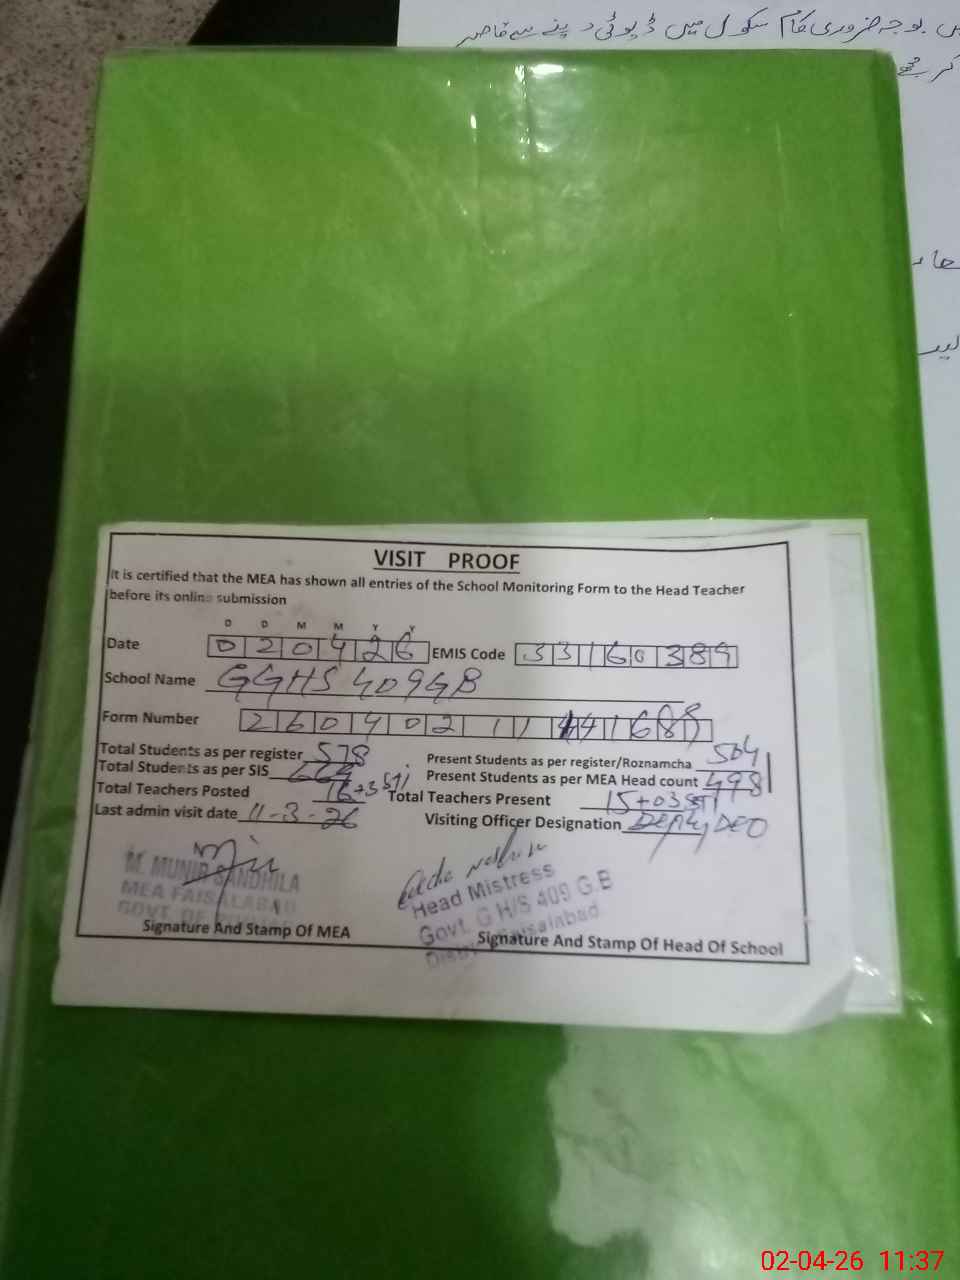 بوجہ ضروری کام سکول میں ڈیوٹی دینے سے قاصر
کر مجھے
VISIT PROOF
It is certified that the MEA has shown all entries of the School Monitoring Form to the Head Teacher
before its online submission
D D M M Y Y
Date 0 2 0 4 2 6 EMIS Code 3 3 1 6 0 3 8 9
School Name GGHS 409GB
Form Number 2 6 0 4 0 2 1 1
Total Students as per register 578 Present Students as per register/Roznamcha 504
Total Students as per SIS Present Students as per MEA Head count 498
Total Teachers Posted 16+3 STI Total Teachers Present 15+03 STI
Last admin visit date 11-3-26 Visiting Officer Designation Deputy DEO
M. MUNIR SANDHILA
MEA FAISALABAD
GOVT. OF PUNJAB
Signature And Stamp Of MEA
Head Mistress
Govt. G H/S 409 G.B
Distri Faisalabad
Signature And Stamp Of Head Of School
02-04-26 11:37